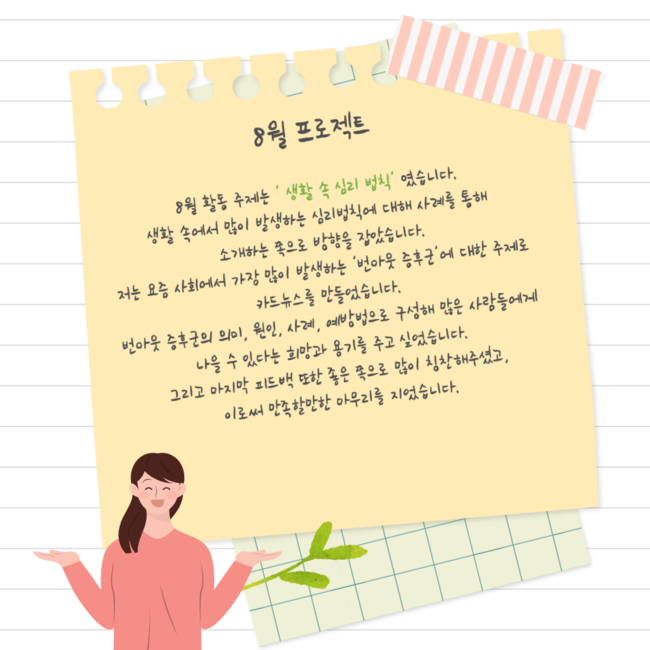 8월 프로젝트
8월 활동 주제는 ' 생활 속 심리 법칙' 였습니다.
생활 속에서 많이 발생하는 심리법칙에 대해 사례를 통해
소개하는 쪽으로 방향을 잡았습니다.
저는 요즘 사회에서 가장 많이 발생하는 '번아웃 증후군'에 대한 주제로
카드뉴스를 만들었습니다.
번아웃 증후군의 의미, 원인, 사례, 예방법으로 구성해 많은 사람들에게
나을 수 있다는 희망과 용기를 주고 싶었습니다.
그리고 마지막 피드백 또한 좋은 쪽으로 많이 칭찬해주셨고,
이로써 만족할만한 마무리를 지었습니다.